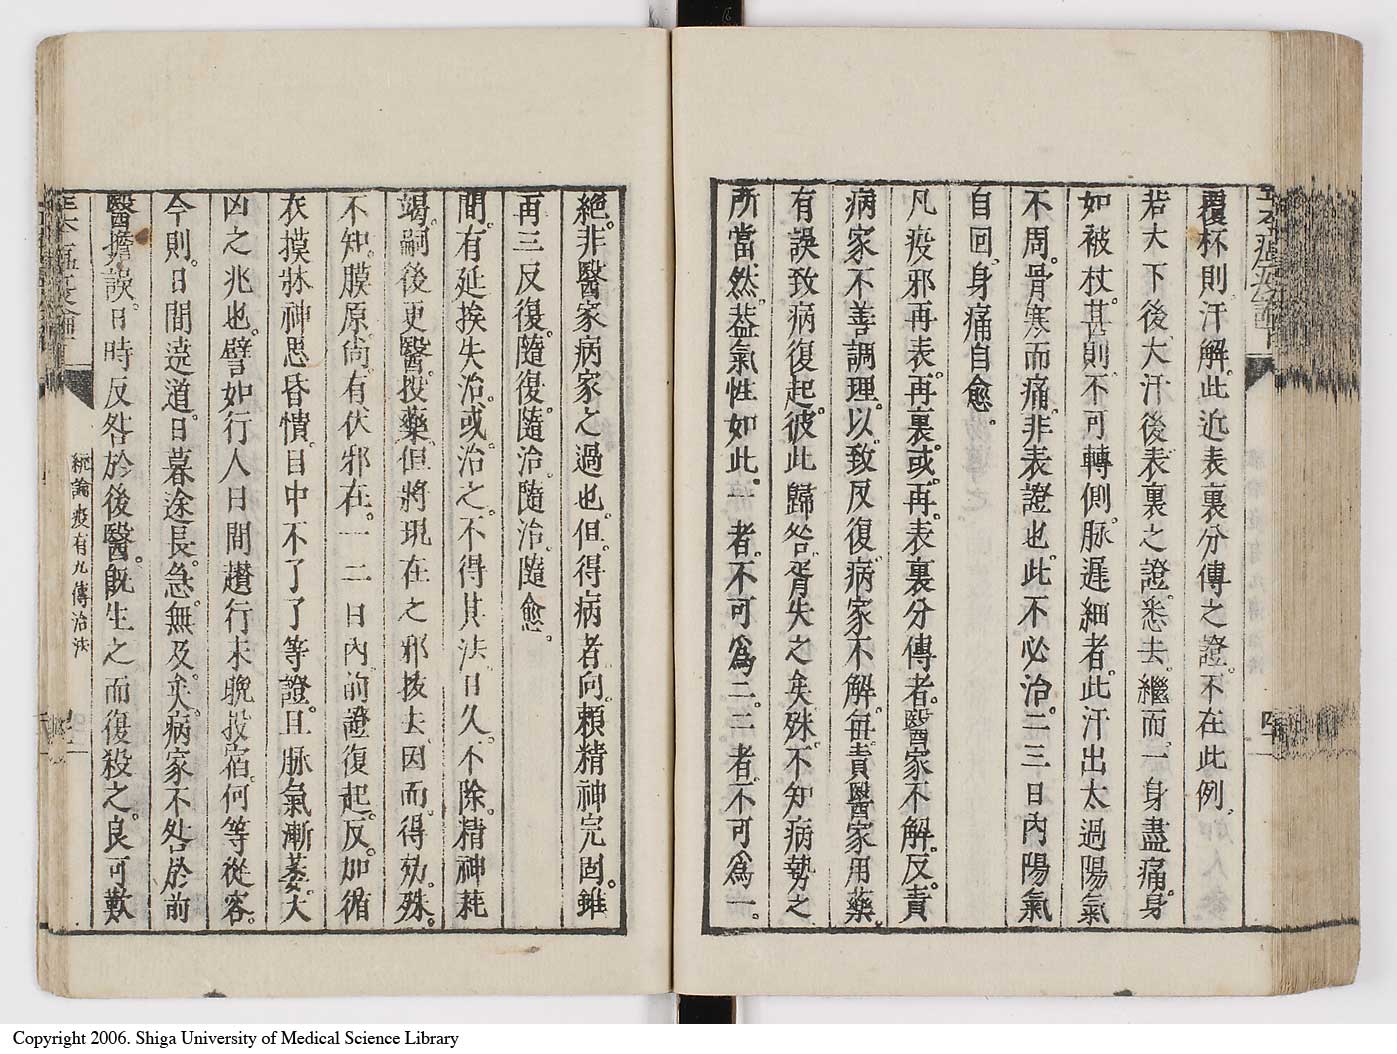 覆杯則汗解。此近表裏分傳之證。不在此例。
若大下後。大汗後。表裏之證。悉去。繼而一身盡痛。身
如被杖。甚則不可轉側。脉遲細者。此汗出太過。陽氣
不周。骨寒而痛。非表證也。此不必治。二三日內陽氣
自回。身痛自愈。
凡疫邪再表。再裏。或再表裏分傳者。醫家不解。反責
病家不善調理。以致反復。病家不解。每責醫家用藥。
有誤致病復起。彼此歸咎。胥失之矣。殊不知病勢之
所當然。盖氣性如此。一者不可爲二。二者不可爲一。
絶。非醫家病家之過也。但得病者向頼精神完固。雖
再三反復。隨復。隨治。隨治。隨愈。
間。有延挨失治。或治之不得其法。日久不除。精神耗
竭。嗣後更醫。投藥。但將現在之邪拔去。因而得効。殊
不知膜原尚有伏邪在。一二日內。前證復起。反加循
衣摸牀。神思昏憒。目中不了了等證。且脉氣漸萎。大
凶之兆也。譬如行人日間趲行。未晚投宿。何等從容。
今則。日間遶道。日暮途長。急無及矣。病家不咎於前
醫擔誤。日時反咎於後醫。旣生之而復殺之。良可歎
統論疫有九傳治法
Copyright 2006. Shiga University of Medical Science Library